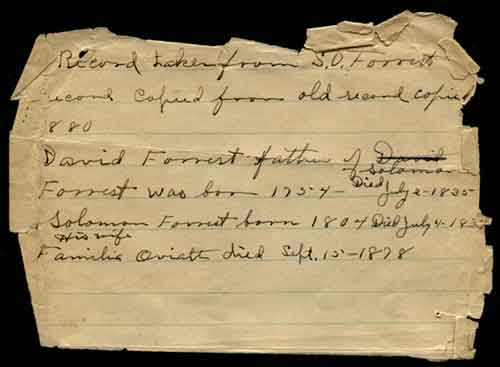 Record taken from S.O. Forrest
record copied from old record copied
1880
David Forrest father of David Solomon
Forrest was born 1754 - Died July 2 - 1835
Solomon Forrest born 1804 Died July 4 - 183
His wife
Familia Oviatt died Sept. 15 - 1878